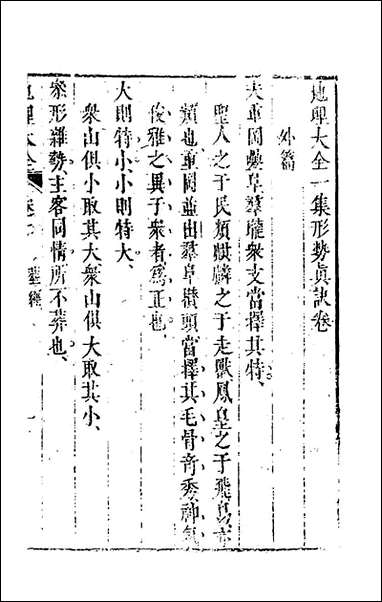 地理大全一集形勢眞訣卷
外篇
夫重岡疊阜羣壠衆支當擇其特、
聖人之于民類麒麟之于走獸鳳皇之于飛鳥亦
類也、重岡並出羣阜攢頭當擇其毛骨竒秀、神氣
俊雅之異于衆者爲正也、
大則特小、小則特大、
衆山俱小取其大衆山俱大取其小、
叅形雜勢主客同情所不葬也、
地理大全 卷 葬經